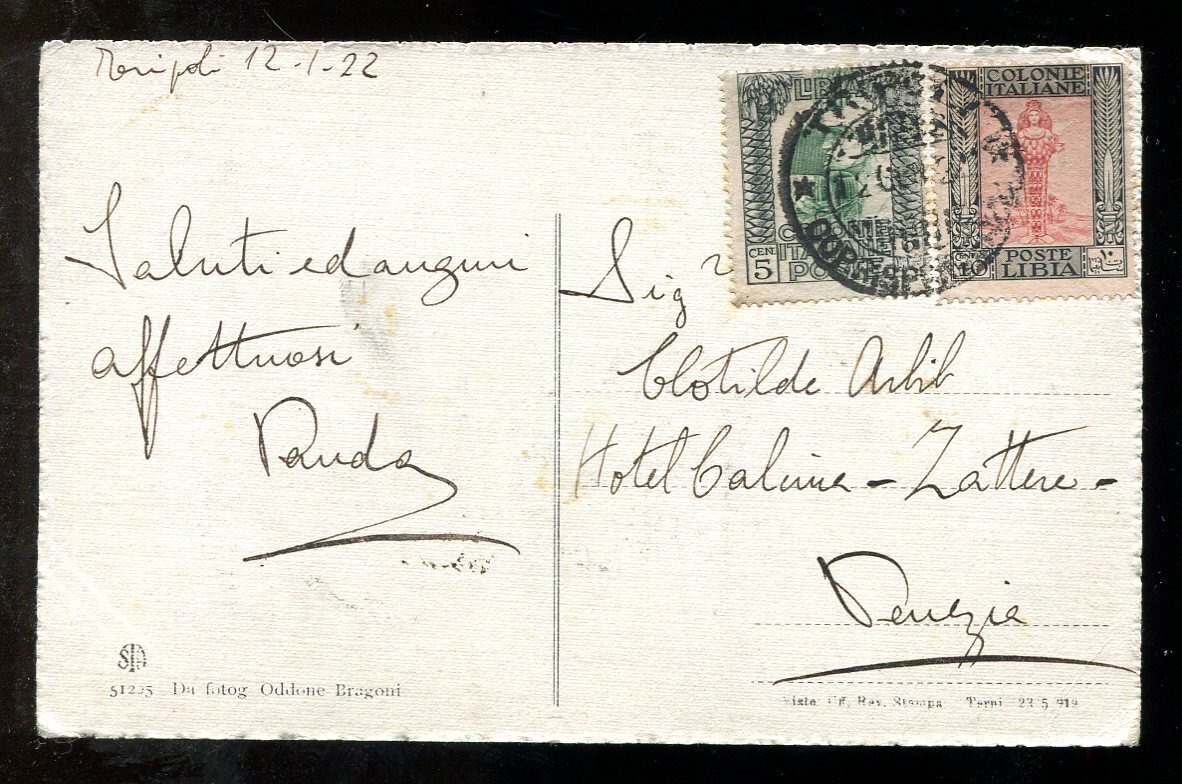 Tripoli 12-1-22
Saluti ed auguri
affettuosi
Sig
Clotilde Arbib
Hotel Calcina - Zattere -
Venezia
LIBIA
COLONIE
ITALIANE
POSTE
CEN. 5
COLONIE
ITALIANE
POSTE
LIBIA
CENT. 10
١٠
51225 Da fotog Oddone Bragoni
Visto Uff. Rev. Stampa Terni 23 5 919